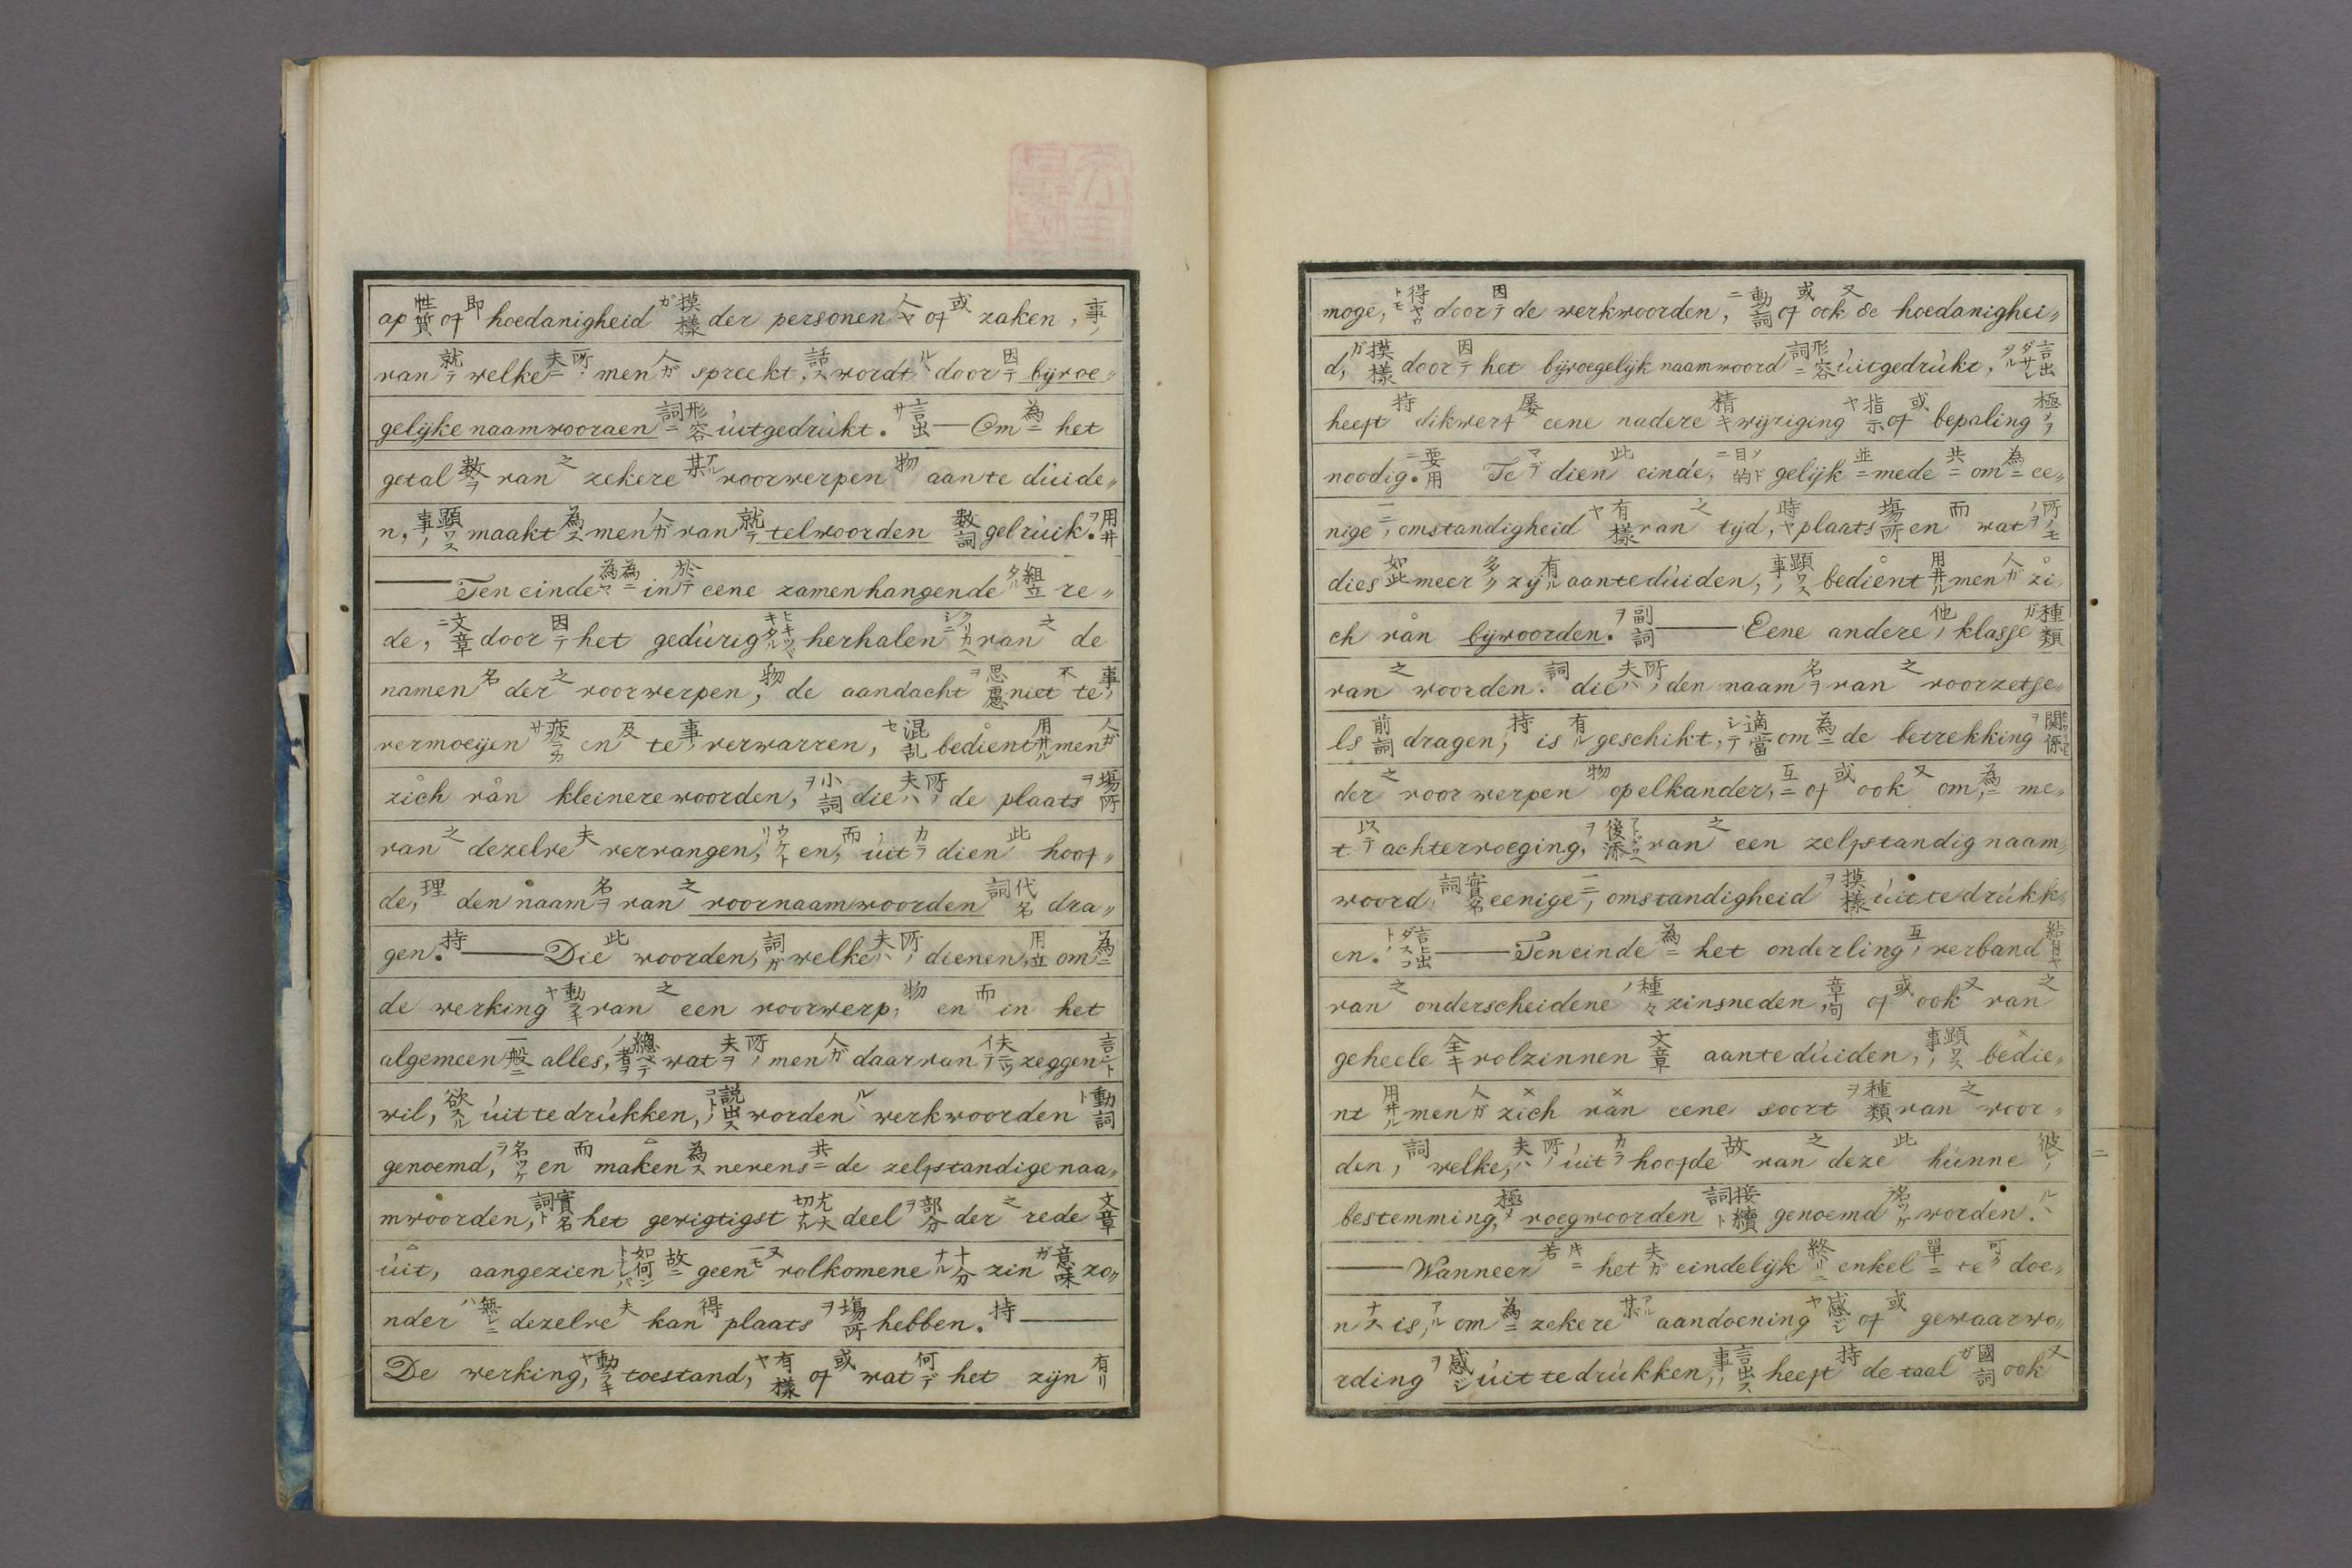 ap 性質 of 即 hoedanigheid ガ 摸様 der personen 人ヤ of 或 zaken, 事ノ
van 就テ welke 夫ニ 所ノ men 人ガ spreekt, 話ス wordt ル door 因テ bijvoe〃
gelijke naamwoorden 形容詞ニ úitgedrúkt. 言出サ — Om 為ニ het
getal 数ヲ van 之 zekere 某アル voorwerpen 物 aan te dúide〃
n, 顕ワス事ノ maakt 為ス men 人ガ van 就テ telwoorden 数詞 gebrúik. ヲ 用井
—— Ten einde 為ヤ 為ニ in 於テ eene zamenhangende 組立タル re〃
de, ニ 文章 door 因テ het gedúrig ヒキツヾキタル herhalen クリカヘシニ van 之 de
namen 名 der 之 voorwerpen, 物 de aandacht ヲ 思慮 niet 不 te 事ノ
vermoeijen 疲ラカサ en 及 te 事ノ verwarren, ヤ 混乱 bedient 用井ル men 人ガ
zich van kleinere woorden, ヲ 小詞 die 夫ハ 所ノ de plaats ヲ 塲所
van 之 dezelve 夫 vervangen, ウケトリ en, 而 úit カラ dien 此 hoof〃
de, 理 den naam 名ヲ van 之 voornaamwoorden 代名詞 dra〃
gen. 持 —— Die 此 woorden, 詞ガ welke 夫ハ 所ノ dienen, 用立 om 為ニ
de werking ヤ 動ラキ van 之 een voorwerp, 物 en 而 in het
algemeen 一般ニ alles, 總ベテノ者ヲ wat 夫ヲ 所ノ men 人ガ daar van 夫ニツイテ zeggen 言ニト
wil, 欲スル úit te drúkken, 説出スコトノ worden ル werkwoorden ト 動詞
genoemd, ヲ 名ツケ en 而 maken 為ス nevens 共ニ de zelfstandige naa〃
mwoorden, 實名詞ト het gewigtigst 尤大切ナル deel ヲ 部分 der 之 rede 文章
úit, aangezien 如何ントナレバ 故ニ geen 一モ 又 volkomene 十分ナル zin ガ 意味 zo〃
nder ハ 無シニ dezelve 夫 kan 得 plaats ヲ 塲所 hebben. 持 ——
De werking, ヤ 動ラキ toestand, ヤ 有様 of 或 wat 何デ het zijn 有リ
moge, 得ヤウトモ door 因テ de werkwoorden, ニ 動詞 of 或 ook 又 de hoedanighei〃
d, ガ 摸様 door 因テ het bijvoegelijk naamwoord 形容詞ニ úitgedrúkt, 言出ダサレタル
heeft 持 dikwerf 屡 eene nadere 精キ wijziging ヤ 指示 of 或 bepaling 極メヲ
noodig. ニ 要用 Te マデ dien 此 einde, ニ 目的 gelijk 並ニ mede 共ニ om 為ニ ee〃
nige 一ニノ omstandigheid ヤ 有様 van 之 tijd, 時ヤ plaats 塲所 en 而 wat ヲ 所ノモノ
dies 如此 meer 多ク zij 有ル aan te dúiden, 顕ワス事ノ bedient 用井ル men 人ガ zi
ch van bijwoorden. ヲ 副詞 —— Eene andere 他ノ klasse ガ 種類
van 之 woorden. 詞 die 夫ハ 所ノ den naam 名ヲ van 之 voorzetse〃
ls 前詞 dragen, 持 is 有ル geschikt, 適當シテ om 為ニ de betrekking ヲ 関係
der 之 voorwerpen 物 op elkander, 互ニ of 或 ook 又 om, 為ニ me〃
t 以テ achtervoeging, ヲ 後添 van 之 een zelfstandig naam〃
woord, 實名詞 eenige 一ニノ omstandigheid ヲ 摸様 úit te drúkk〃
en. 言ヒ出ダスコトノ —— Ten einde 為ニ het onderling 互ノ verband 結目ヤ
van 之 onderscheidene 種々ノ zinsneden 章句 of 或 ook 又 van 之
geheele 全キ volzinnen 文章 aan te dúiden, 顕ワス事ノ bedie〃
nt 用井ル men 人ガ zich van eene soort ヲ 種類 van 之 woor〃
den, 詞 welke, 夫ハ 所ノ úit カラ hoofde 故 van 之 deze 此 húnne 彼レノ
bestemming, 極メ voegwoorden 接續詞ト genoemd 名ツケラ worden. ル
—— Wanneer 若 片ニ het 夫ガ eindelijk 終リニ enkel 單ニ te 可ク doe〃
n ナス is, アル om 為ニ zekere 某アル aandoening ヤ 感ジ of 或 gewaarwo〃
rding ヲ 感ジ úit te drúkken, 言出ス事ノ heeft 持 de taal ガ 國詞 ook 又
二